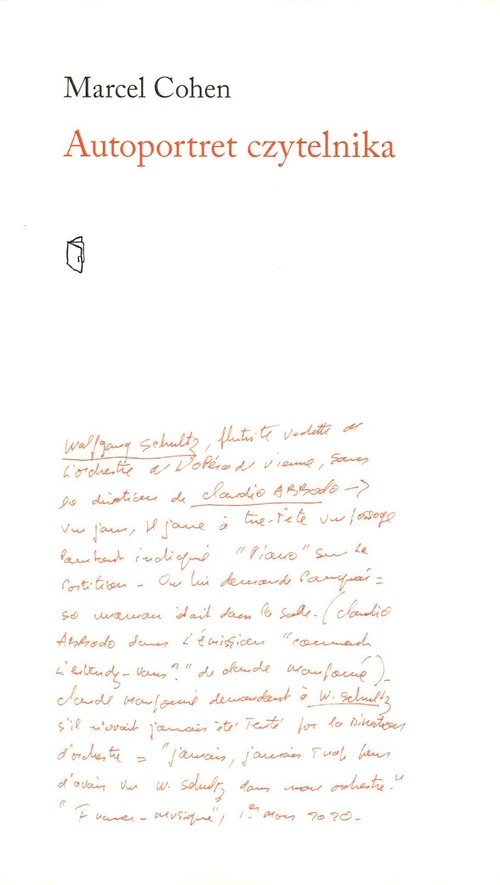 Marcel Cohen
Autoportret czytelnika
Wolfgang Schultz, flûtiste vedette de
L'orchestre de L'Opéra de Vienne, sous
la direction de Claudio ABBADO →
Un jour, il joue à tue-tête un passage
pourtant indiqué "Piano" sur la
partition – On lui demande pourquoi =
sa maman était dans la salle – (Claudio
ABBADO dans L'Émission "comment
L'entendez-vous?" de Claude Maupomé) –
Claude Maupomé demandant à W. Schultz
s'il n'avait jamais été tenté par la Direction
d'orchestre = "jamais, jamais
d'avoir un W. Schultz dans mon orchestre."
"France-Musique", 1er Mars 2020 –